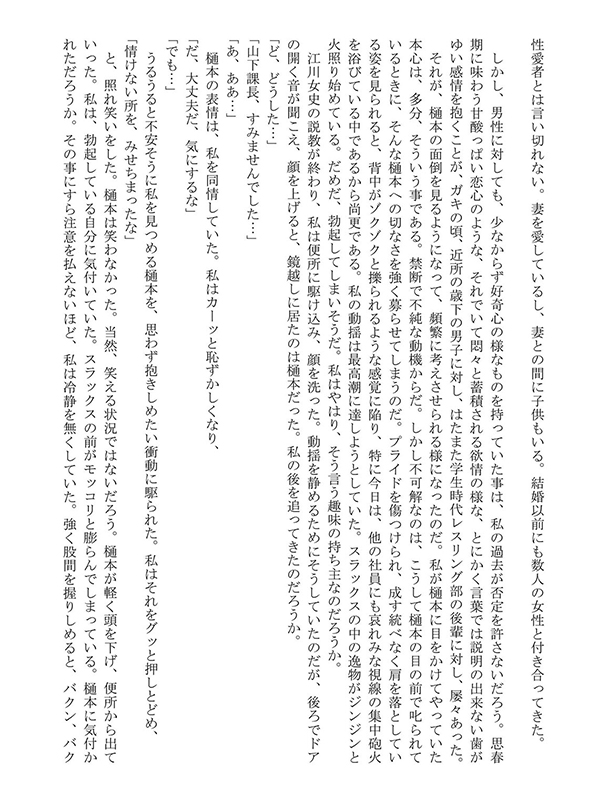 性愛者とは言い切れない。妻を愛しているし、妻との間に子供もいる。結婚以前にも数人の女性と付き合ってきた。
しかし、男性に対しても、少なからず好奇心の様なものを持っていた事は、私の過去が否定を許さないだろう。思春
期に味わう甘酸っぱい恋心のような、それでいて悶々と蓄積される欲情の様な、とにかく言葉では説明の出来ない歯が
ゆい感情を抱くことが、ガキの頃、近所の歳下の男子に対し、はたまた学生時代レスリング部の後輩に対し、屡々あった。
それが、樋本の面倒を見るようになって、頻繁に考えさせられる様になったのだ。私が樋本に目をかけてやっていた
本心は、多分、そういう事である。禁断で不純な動機からだ。しかし不可解なのは、こうして樋本の目の前で叱られて
いるときに、そんな樋本への切なさを強く募らせてしまうのだ。プライドを傷つけられ、成す統べなく肩を落としてい
る姿を見られると、背中がゾクゾクと擽られるような感覚に陥り、特に今日は、他の社員にも哀れみな視線の集中砲火
を浴びている中であるから尚更である。私の動揺は最高潮に達しようとしていた。スラックスの中の逸物がジンジンと
火照り始めている。だめだ、勃起してしまいそうだ。私はやはり、そう言う趣味の持ち主なのだろうか。
江川女史の説教が終わり、私は便所に駆け込み、顔を洗った。動揺を静めるためにそうしていたのだが、後ろでドア
の開く音が聞こえ、顔を上げると、鏡越しに居たのは樋本だった。私の後を追ってきたのだろうか。
「ど、どうした…」
「山下課長、すみませんでした…」
「あ、ああ…」
樋本の表情は、私を同情していた。私はカーッと恥ずかしくなり、
「だ、大丈夫だ、気にするな」
「でも…」
うるうると不安そうに私を見つめる樋本を、思わず抱きしめたい衝動に駆られた。私はそれをグッと押しとどめ、
「情けない所を、みせちまったな」
と、照れ笑いをした。樋本は笑わなかった。当然、笑える状況ではないだろう。樋本が軽く頭を下げ、便所から出て
いった。私は、勃起している自分に気付いていた。スラックスの前がモッコリと膨らんでしまっている。樋本に気付か
れただろうか。その事にすら注意を払えないほど、私は冷静を無くしていた。強く股間を握りしめると、バクン、バク